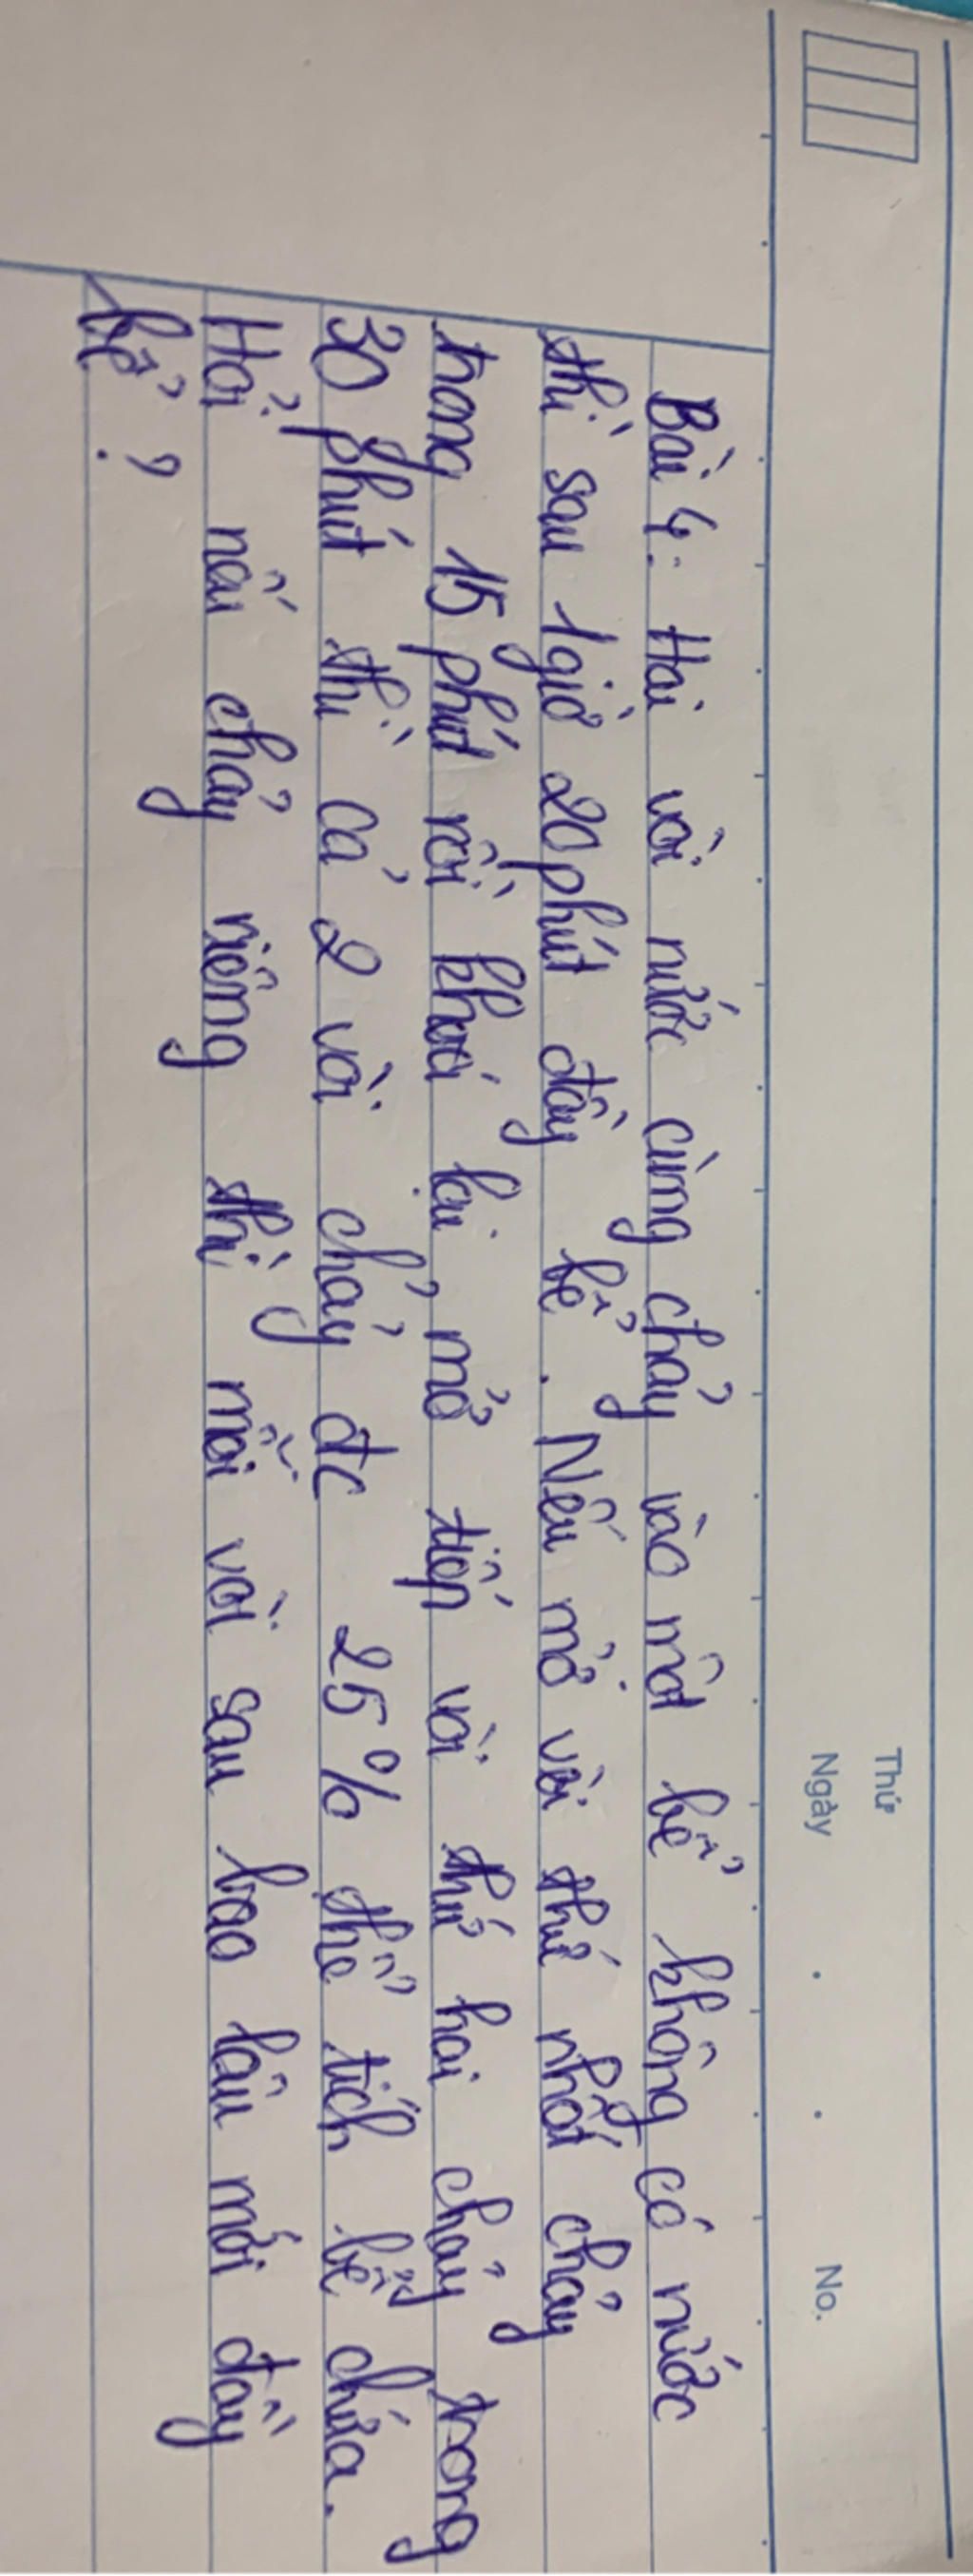 Thứ
Ngày . . No.
Bài 4: Hai vòi nước cùng chảy vào một bể không có nước
thì sau 1 giờ 20 phút đầy bể. Nếu mở vòi thứ nhất chảy
trong 15 phút rồi khoá lại, mở tiếp vòi thứ hai chảy trong
30 phút thì cả 2 vòi chảy đc 25% thể tích bể chứa.
Hỏi nếu chảy riêng thì mỗi vòi sau bao lâu mới đầy
bể?